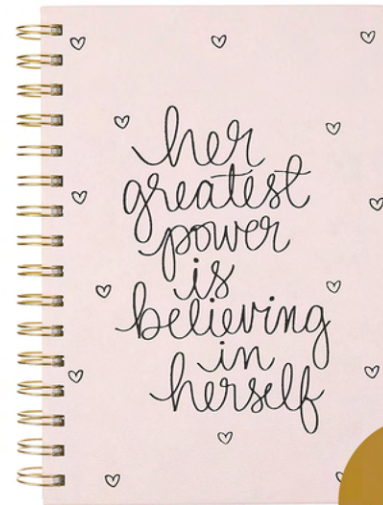 her
greatest
power
is
believing
in
herself